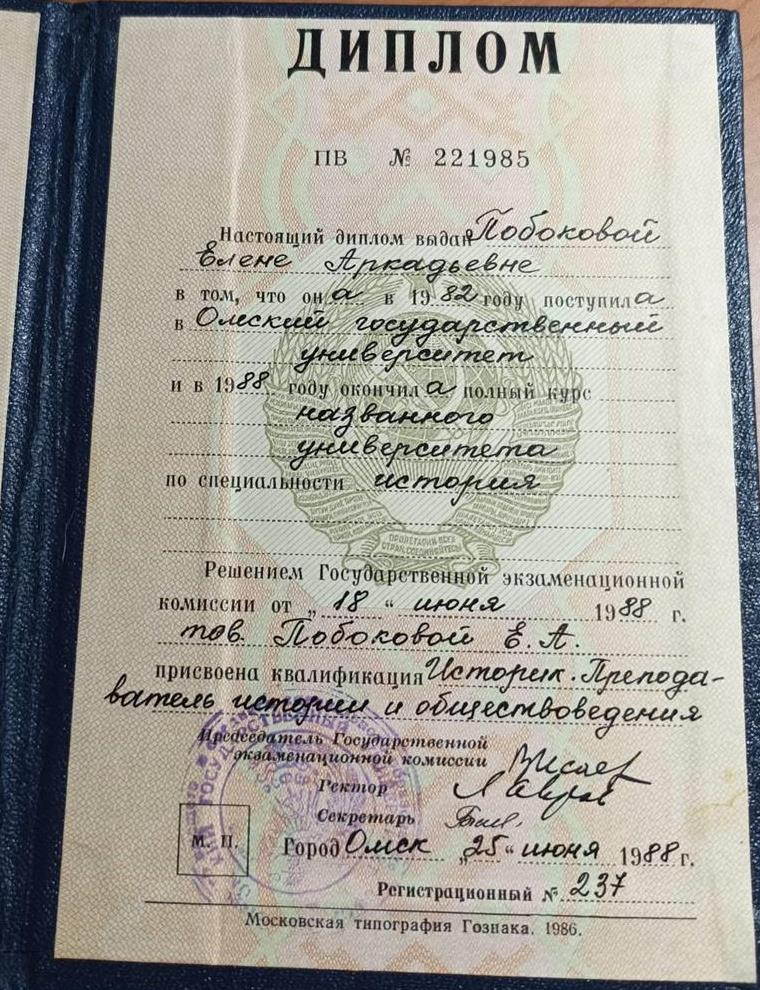 ДИПЛОМ
ПВ № 221985
Настоящий диплом выдан Побоковой
Елене Аркадьевне
в том, что она в 1982 году поступила
в Омский государственный
университет
и в 1988 году окончила полный курс
названного
университета
по специальности история
ПРОЛЕТАРИИ ВСЕХ
СТРАН, СОЕДИНЯЙТЕСЬ!
Решением Государственной экзаменационной
комиссии от „18“ июня 1988 г.
тов. Побоковой Е. А.
присвоена квалификация Историк. Препода-
ватель истории и обществоведения
Председатель Государственной
экзаменационной комиссии
Ректор
Секретарь
М. П.
Город Омск „25“ июня 1988 г.
Регистрационный № 237
Московская типография Гознака. 1986.